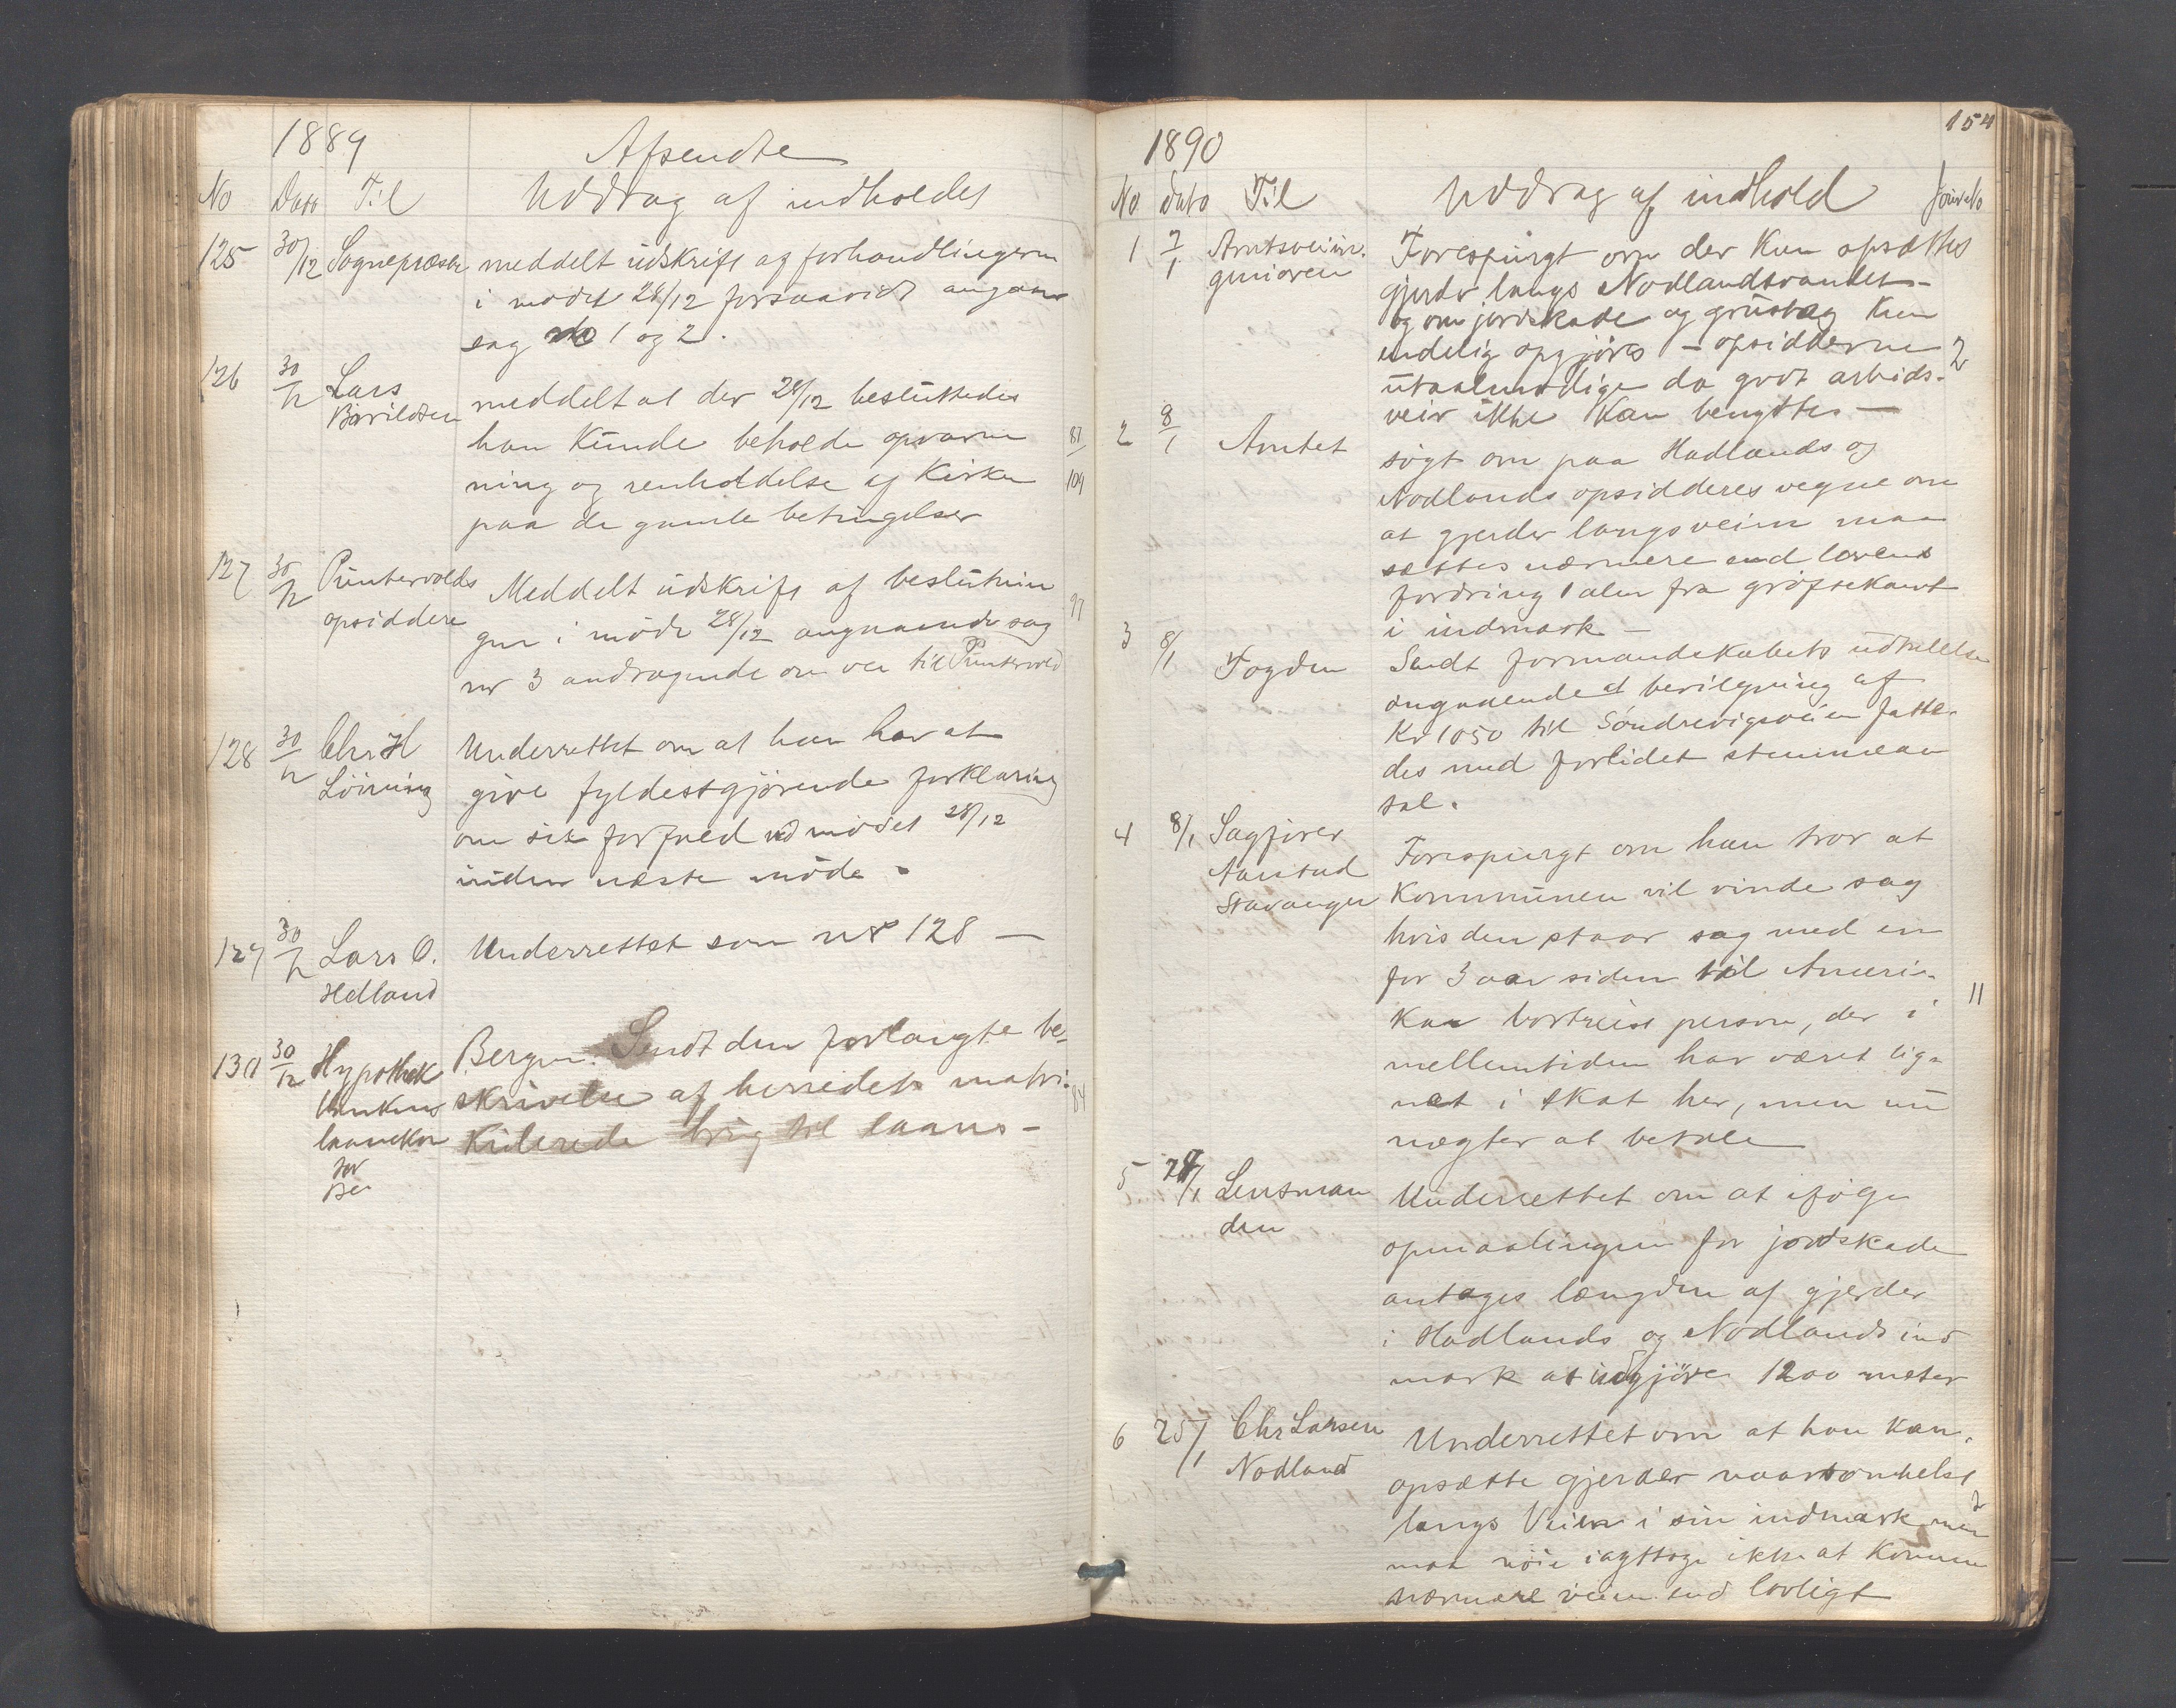 1889
Afsendte
No Dato Til Uddrag af indholdet
125 30/12 Sognepræsten meddelt udskrift af forhandlingerne
i mødet 28/12 forsaavidt angaar
sag No 1 og 2.
126 30/12 Lars meddelt at der 28/12 besluttedes
Bårildsen
han kunde beholde opvarm
ning og renholdelse af Kirken 87/109
paa de gamle betingelser
127 30/12 Puntervolds Meddelt udskrift af beslutnin
opsiddere gen i møde 28/12 angaaende sag 97
nr 3 andragende om vei til Puntervold
128 30/12 Chr H Underrettet om at han har at
Löining give fyldestgjörende forklaring
om sit forfald ved mödet 28/12
inden næste möde.
129 30/12 Lars O. Underrettet som nr 128 —
Helland
130 30/12 Hypothek Bergen. Sendt den forlangte be-
bankens skrivelse af herredets matri- 84
laanekon kulerede brug til laans-
tor
Ber
154
1890
No Dato Til Uddrag af indhold JournNo
1 7/1 Amtsveiin- Forespurgt om der kan opsættes
geniören gjerder langs Nodlandsvandet-
og om jordskade og grustag kan
endelig opgjöres – opsidderne 2
utaalmodige da godt arbeids-
veir ikke kan benyttes —
2 8/1 Amtet søgt om paa Hadlands og
Nodlands opsidderes vegne om
at gjerder langs veien maa
sættes nærmere end lovens
fordring 1 alen fra gröftekant
i indmark —
3 8/1 Fogden Sendt formandskabets udtalelse
angaaende at bevilgning af
Kr 1050 til Söndrevigsveien fatte-
des med forlidet stemmean
tal.
4 8/1 Sagfører Forespurgt om han tror at
Aanstad
Stavanger Kommunen vil vinde sag
hvis den staar sag med en
for 3 aar siden til Ameri-
ka bortreist person, der i 11
mellemtiden har været lig-
net i skat her, men nu
nægter at betale
5 24/1 Lensman Underrettet om at ifølge
den opmaalingen for jordskade
antages længden af gjerder
i Hadlands og Nodlands ind
mark at udgjöre 1200 meter
6 25/1 Chr Larsen Underrettet om at han kan
Nodland opsætte gjerder naarsomhelst
langs Veien i sin indmark men 2
maa nöie iagttage ikke at komme
nærmere veien end lovligt